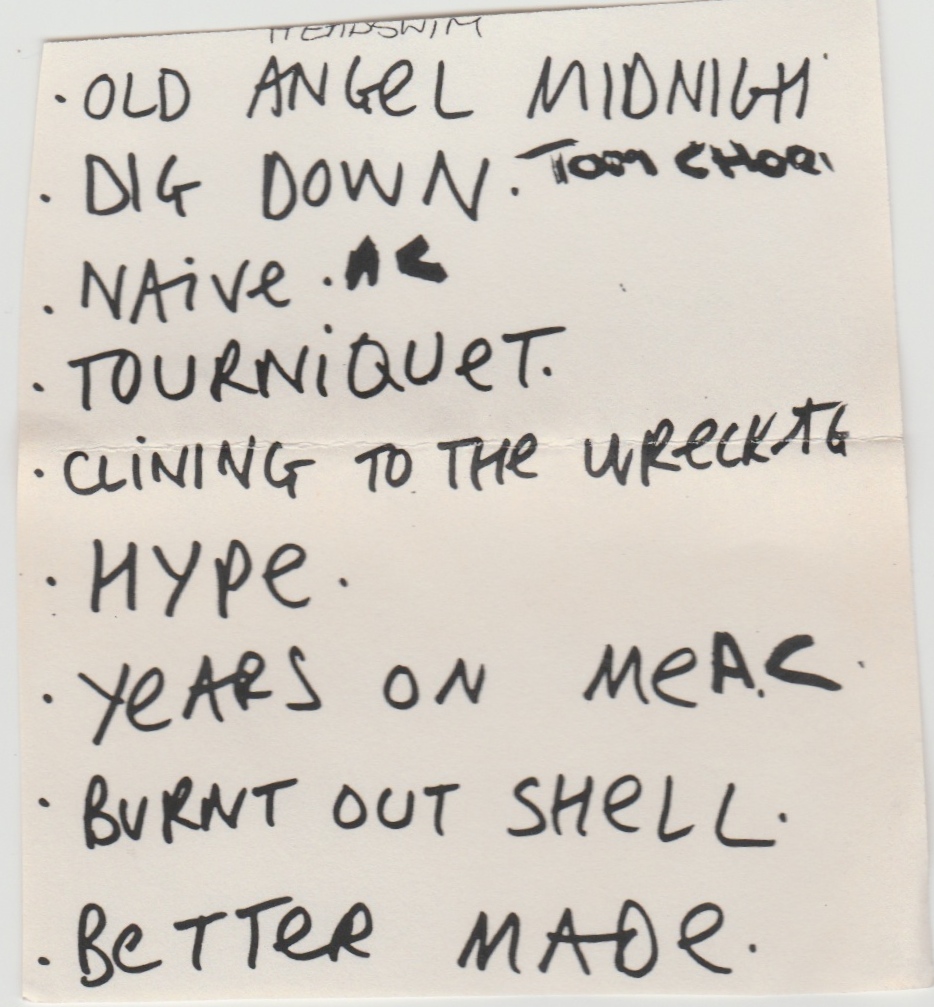 HEADSWIM
· OLD ANGeL MIDNIGH
· DIG DOWN. TOM CHOR
· NAiVe · AC
· TOURNiQUeT.
· CLiNING TO THe WReCK
· HYPe.
· YeARS ON Me A.C.
· BURNT OUT SHeLL.
· BeTTeR MADe.